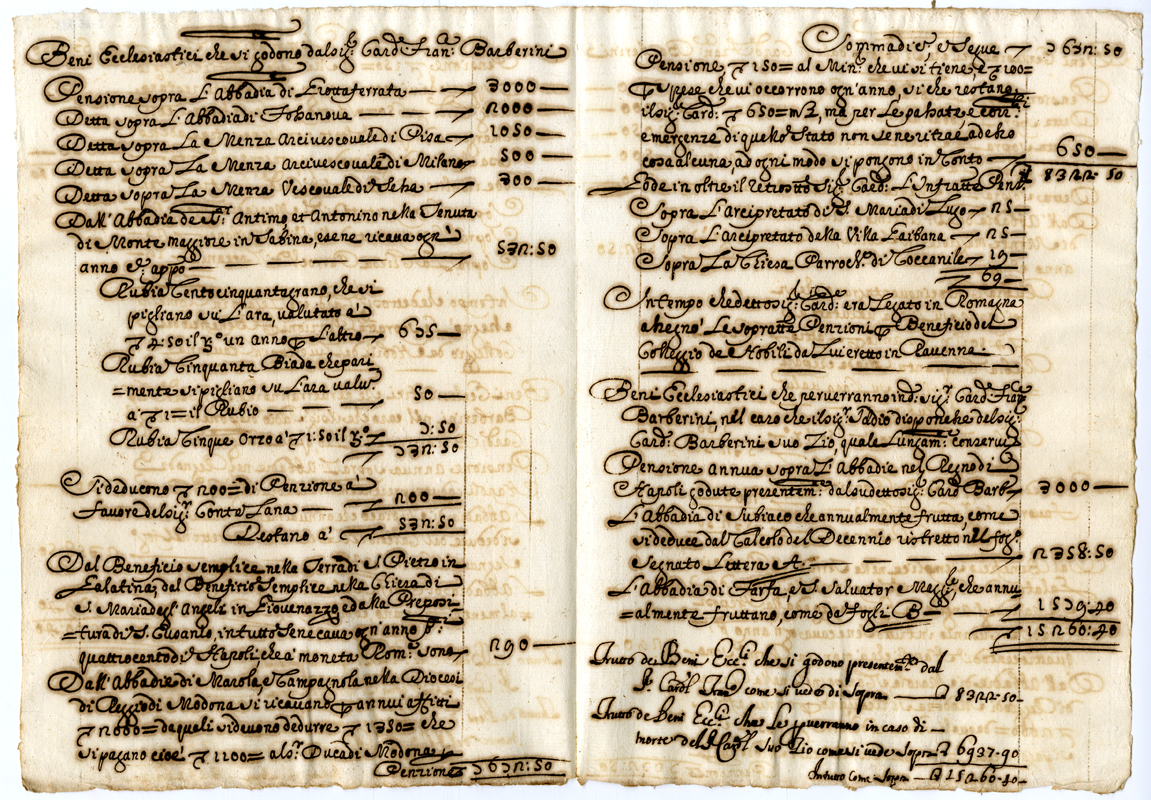 Beni Ecclesiastici che si godono dal sig.r Card.l Fran.co Barberini
Pensione sopra L'Abbadia di Grottaferrata — 3000 —
Detta sopra L'Abbadia di Fossanova — 2000 —
Detta sopra La Menza Arcivescovale di Pisa — 1050 —
Detta sopra La Menza Arcivescovale di Milano — 500 —
Detta sopra La Menza Vescovale di — 300 —
Dall'Abbadia de S.ti Antimo et Antonino nella Tenuta
di Monte maggiore in Sabina, se ne ricava ogn'
anno appo — 532:50
Rubia Cento cinquanta grano, che si
pigliano su L'ara, valutato à
▽ 4:50 il R.o un anno p L'altro — 675 —
Rubia Cinquanta Biada che pari
=mente si pigliano su L'ara valu.ta
a ▽ 1= il Rubio — 50 —
Rubia Cinque Orzo à ▽ 1:50 il R.o — 7:50
732:50
Si deducono ▽ 200= di Penzione à
favore del sig.r Conte Zana — 200 —
Restano à — 532:50
Del Beneficio semplice nella Terra di S. Pietro in
Galatina, del Beneficio Semplice nella Chiesa di
S. Maria degl'Angeli in Giovenazzo, e dalla Preposi=
=tura di S. Eusanio, in tutto se ne cava ogn'anno d.ti
quattrocento di Napoli che à moneta Rom.a sono — 290 —
Dall'Abbadie di Marola, e Campagnola nella Diocesi
di Reggio di Modona si ricavano p annui affitti
▽ 2000= da quali si devono dedurre ▽ 1350= che
si pagano cioè ▽ 1200= al S.r Duca di Modona,
Penzione 7672:50
Somma di e Segue — 7672:50
Pensione ▽ 150= al Min.ro che vi si tiene, e ▽ 200=
p spese che vi occorrono ogn'anno, si che restano
il sig.r Card.l ▽ 650= m/2, ma per le passate e corr.ti
emergenze di quello stato non se ne ritrae adesso
cosa alcuna, ad ogni modo si pongono in Conto — 650 —
8322:50
Gode in oltre il retrotto Sig.r Card.l L'Infratte Penz.i
Sopra L'arcipretato di S. Maria di Lugo — 25 —
Sopra L'arcipretato della Villa Gaibana — 25 —
Sopra La Chiesa Parroch.le di Coccanile — 19 —
69 —
In tempo che detto sig.r Card.le era Legato in Romagna
assegnò Le sopratte Penzioni p Beneficio del
Colleggio de Nobili da Lui eretto in Ravenna.
Beni Ecclesiastici che perverranno in d. sig.r Card.l Fran.co
Barberini, nel caso che il Sig.r Iddio disponesse del sig.r
Card.l Barberini suo Zio, quale Lungam.te conservi
Pensione annua sopra L'Abbadie nel Regno di
Napoli godute presentem.te dal sudetto sig.r Card.l Barb.ni 3000 —
L'Abbadia di Subiaco che annualmente frutta, come
si deduce dal Calcolo del Decennio ristretto nel fog.o
segnato Lettera A. — 2358:50
L'Abbadia di Farfa, e S. Salvator Magg.re che annu
=almente fruttano, come da fogli B — 1579:40
15260:40
Frutto de Beni Ecc.ci che si godono presentem.te dal
S.r Card.l Fran.co come si vede di Sopra — ▽ 8322:50
Frutto de Beni Ecc.ci che le perverranno in caso di
morte del S.r Card.l Suo Zio come si vede sopra ▽ 6937:90
In tutto Come Sopra — ▽ 15260:40